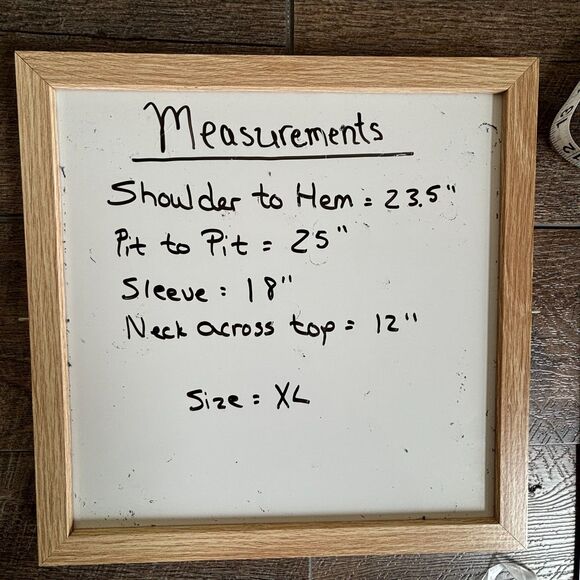 Measurements
Shoulder to Hem = 23.5"
Pit to Pit = 25"
Sleeve = 18"
Neck across top = 12"
Size = XL